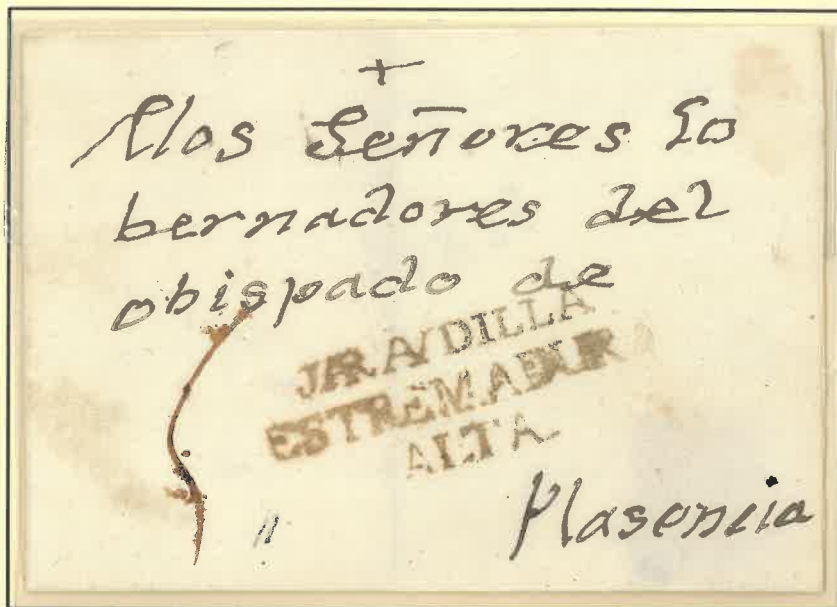 +
Alos Señores Go
bernadores del
obispado de
JARAYDILLA
ESTREMADUR
ALTA
Plasencia